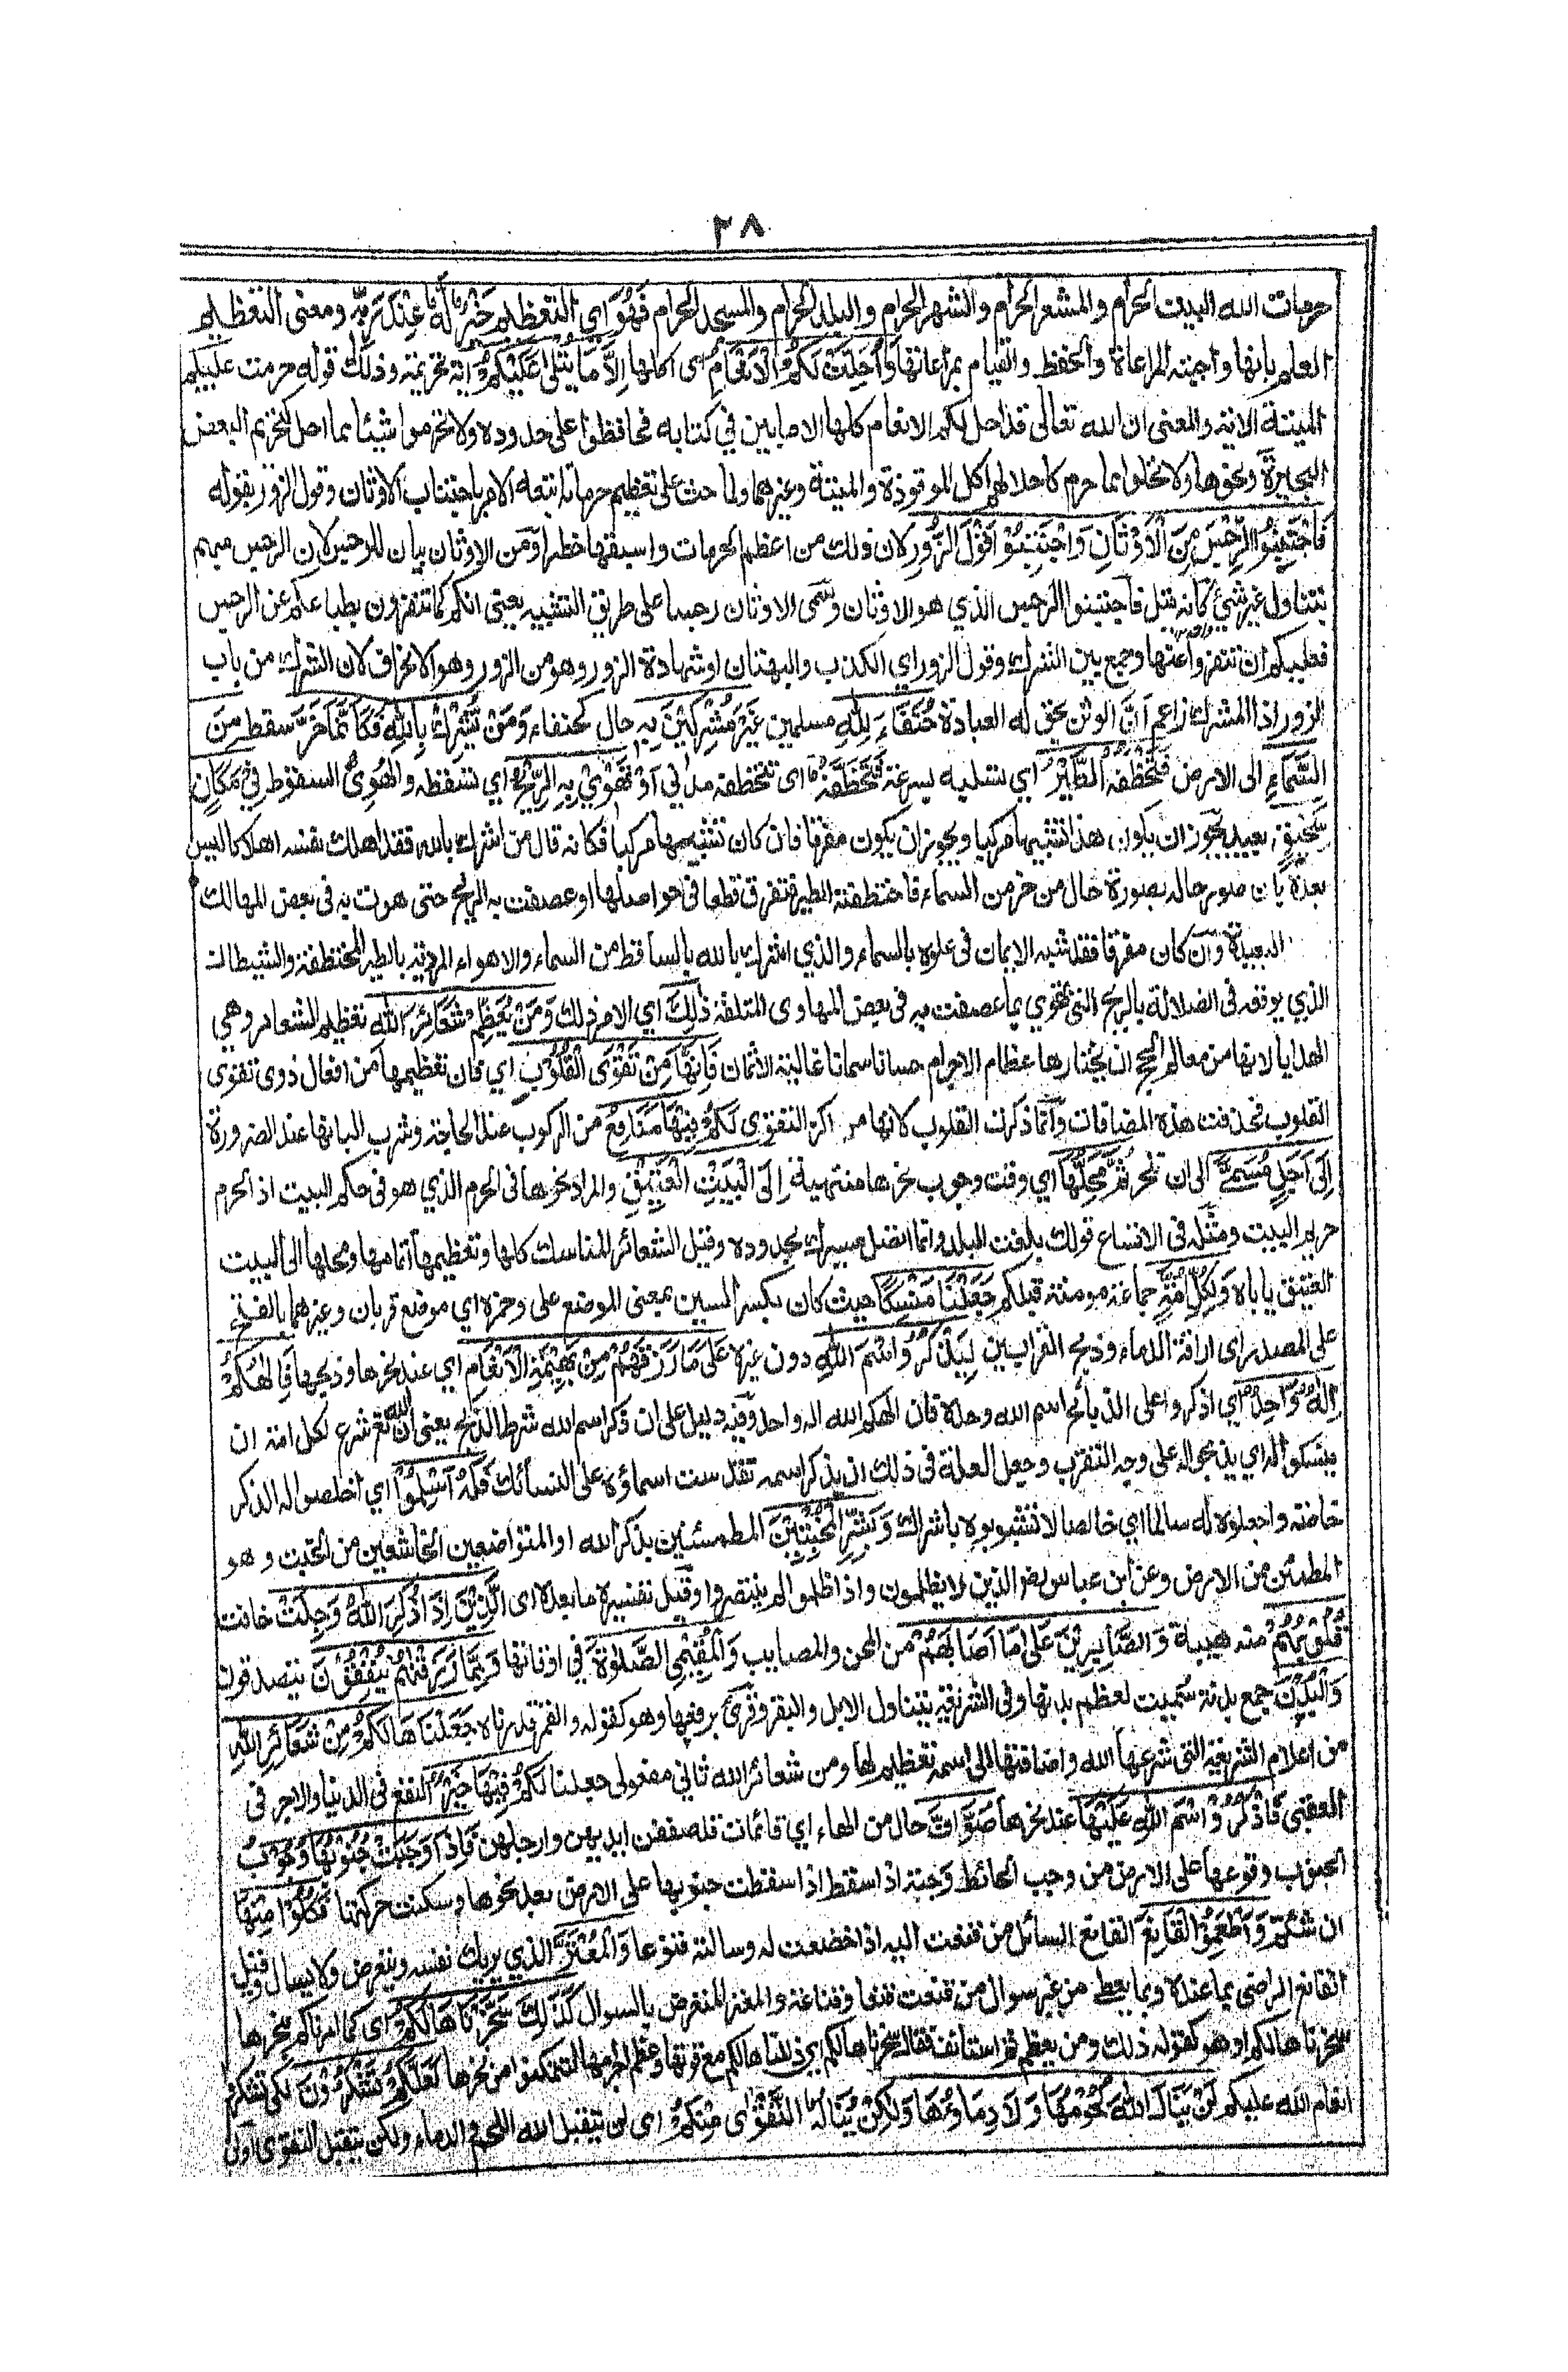 ٢٨
حرمات الله البيت الحرام والمشعر الحرام والشهر الحرام والبلد الحرام والمسجد الحرام فَهُوَ اي التعظيم خَيْرٌ لَّهٗ عِنْدَ رَبِّهٖ ومعنى التعظيم
العلم بانها واجبة المراعاة والحفظ والقيام بمراعاتها وَاُحِلَّتْ لَكُمُ الْاَنْعَامُ اى اكلها اِلَّا مَا يُتْلٰى عَلَيْكُمْ اٰية تحريمه وذلك قوله حرمت عليكم
الميتة الاية والمعنى ان الله تعالى قد احل لكم الانعام كلها الا ما بين في كتابه فحافظوا على حدوده ولا تحرموا شيئا مما احل كتحريم البعض
البحيرة ونحوها ولا تحلوا مما حرم كاحلالهم اكل الموقوذة والميتة وغيرهما ولما حث على تعظيم حرماته اتبعه الامر باجتناب الاوثان وقول الزور بقوله
فَاجْتَنِبُوا الرِّجْسَ مِنَ الْاَوْثَانِ وَاجْتَنِبُوْا قَوْلَ الزُّوْرِ لان ذلك من اعظم الحرمات واسبقها خطرا ومن الاوثان بيان للرجس لان الرجس مبهم
يتناول غير شيئ كانه قيل فاجتنبوا الرجس الذي هو الاوثان وسمى الاوثان رجسا على طريق التشبيه يعنى انكم كما تنفرون بطباعكم عن الرجس
فعليكم ان تنفروا عنها وجمع بين الشرك وقول الزور اي الكذب والبهتان او شهادة الزور وهو من الزور وهو الانحراف لان الشرك من باب
الزور اذ المشرك زاعم اَنَّ الوثن يحق له العبادة حُنَفَآءَ لِلّٰهِ مسلمين غَيْرَ مُشْرِكِيْنَ بِهٖ حال كحنفاء وَمَنْ يُّشْرِكْ بِاللّٰهِ فَكَاَنَّمَا خَرَّ سقط مِنَ
السَّمَآءِ الى الارض فَتَخْطَفُهُ الطَّيْرُ اي تسلبه بسرعة فَتَخَطَّفُهُ اى تتخطفه مدني اَوْ تَهْوِيْ بِهِ الرِّيْحُ اي تسقطه والهُوِيُّ السقوط فِيْ مَكَانٍ
سَحِيْقٍ بعيد يجوز ان يكون هذا تشبيها مركبا ويجوز ان يكون مفرقا فان كان تشبيها مركبا فكانه قال من اشرك بالله فقد اهلك نفسه اهلاكا ليس
بعده بان صور حاله بصورة حال من خر من السماء فاختطفته الطير فتفرق قطعا فى حواصلها او عصفت به الريح حتى هوت به فى بعض المهالك
البعيدة وان كان مفرقا فقد شبه الايمان فى علوه بالسماء والذي اشرك بالله بالساقط من السماء والاهواء المردية بالطير المختطفة والشيطان
الذي يوقعه فى الضلالة بالريح التى تهوي بما عصفت به فى بعض المهاوى المتلفة ذٰلِكَ اي الامر ذلك وَمَنْ يُّعَظِّمْ شَعَآئِرَ اللّٰهِ تعظيم الشعائر وهي
الهدايا لانها من معالم الحج ان يختارها عظام الاجرام حسانا سمانا غالية الاثمان فَاِنَّهَا مِنْ تَقْوَى الْقُلُوْبِ اي فان تعظيمها من افعال ذوى تقوى
القلوب فحذفت هذه المضافات وانما ذكرت القلوب لانها مراكز التقوى لَكُمْ فِيْهَا مَنَافِعُ من الركوب عند الحاجة وشرب البانها عند الضرورة
اِلٰٓى اَجَلٍ مُّسَمًّى الى ان تنحر ثُمَّ مَحِلُّهَآ اي وقت وجوب نحرها منتهية اِلَى الْبَيْتِ الْعَتِيْقِ والمراد نحرها فى الحرم الذي هو فى حكم البيت اذ الحرم
حريم البيت ومثله فى الاتساع قولك بلغت البلد وانما اتصل مسيرك بحدوده وقيل الشعائر المناسك كلها وتعظيمها اتمامها ومحلها الى البيت
العتيق ياباه وَلِكُلِّ اُمَّةٍ جماعة مومنة قبلكم جَعَلْنَا مَنْسِكًا حيث كان بكسر السين بمعنى الموضع على وحمزه اي موضع قربان وغيرهما بالفتح
على المصدر اى اراقة الدماء وذبح القرابين لِيَذْكُرُوا اسْمَ اللّٰهِ دون غيره عَلٰى مَا رَزَقَهُمْ مِّنْۢ بَهِيْمَةِ الْاَنْعَامِ اي عند نحرها وذبحها فَاِلٰهُكُمْ
اِلٰهٌ وَّاحِدٌ اي اذكروا على الذبائح اسم الله وحده فان الهكم الله اله واحد وفيه دليل على ان ذكر اسم الله شرط الذبح يعنى ان الله تع شرع لكل امة ان
ينسكوا له اي يذبحوا له على وجه التقرب وجعل العلة فى ذلك ان يذكر اسمه تقدست اسماؤه على النسائك فَلَهٗٓ اَسْلِمُوْا اي اخلصوا له الذكر
خاصة واجعلوه له سالما اي خالصا لا تشوبوه باشراك وَبَشِّرِ الْمُخْبِتِيْنَ المطمئنين بذكر الله او المتواضعين الخاشعين من الخبت وهو
المطمئن من الارض وعن ابن عباس رضـ الذين لا يظلمون واذا ظلموا لم ينتصروا وقيل تفسيره ما بعده اى الَّذِيْنَ اِذَا ذُكِرَ اللّٰهُ وَجِلَتْ خافت
قُلُوْبُهُمْ منه هيبة وَالصّٰبِرِيْنَ عَلٰى مَآ اَصَابَهُمْ من المحن والمصايب وَالْمُقِيْمِي الصَّلٰوةِ في اوقاتها وَمِمَّا رَزَقْنٰهُمْ يُنْفِقُوْنَ يتصدقون
وَالْبُدْنَ جمع بدنة سميت لعظم بدنها وفى الشريعة يتناول الابل والبقر وقرئ برفعها وهو كقوله والقمر قدرناه جَعَلْنٰهَا لَكُمْ مِّنْ شَعَآئِرِ اللّٰهِ
من اعلام الشريعة التى شرعها الله واضافتها الى اسمه تعظيم لها ومن شعائر الله ثاني مفعولى جعلنا لَكُمْ فِيْهَا خَيْرٌ النفع فى الدنيا والاجر فى
العقبى فَاذْكُرُوا اسْمَ اللّٰهِ عَلَيْهَا عند نحرها صَوَآفَّ حال من الهاء اي قائمات قد صففن ايديهن وارجلهن فَاِذَا وَجَبَتْ جُنُوْبُهَا وجوب
الجنوب وقوعها على الارض من وجب الحائط وجبة اذا سقط اذا سقطت جنوبها على الارض بعد نحرها وسكنت حركتها فَكُلُوْا مِنْهَا
ان شئتم وَاَطْعِمُوا الْقَانِعَ القانع السائل من قنعت اليه اذا خضعت له وسالته قنوعا وَالْمُعْتَرَّ الذي يريك نفسه ويتعرض ولا يسال وقيل
القانع الراضى بما عنده وبما يعطى من غير سوال من قنعت قنعا وقناعة والمعتر المتعرض بالسوال كَذٰلِكَ سَخَّرْنٰهَا لَكُمْ اى كما امرناكم بنحرها
سخرناها لكم او هو كقوله ذلك ومن يعظم ثم استانف فقال سخرناها لكم اي ذللناها لكم مع قوتها وعظم اجرامها لتتمكنوا من نحرها لَعَلَّكُمْ تَشْكُرُوْنَ لكى تشكروا
انعام الله عليكم لَنْ يَّنَالَ اللّٰهَ لُحُوْمُهَا وَلَا دِمَآؤُهَا وَلٰكِنْ يَّنَالُهُ التَّقْوٰى مِنْكُمْ اى لن يتقبل الله اللحوم والدماء ولكن يتقبل التقوى اولن